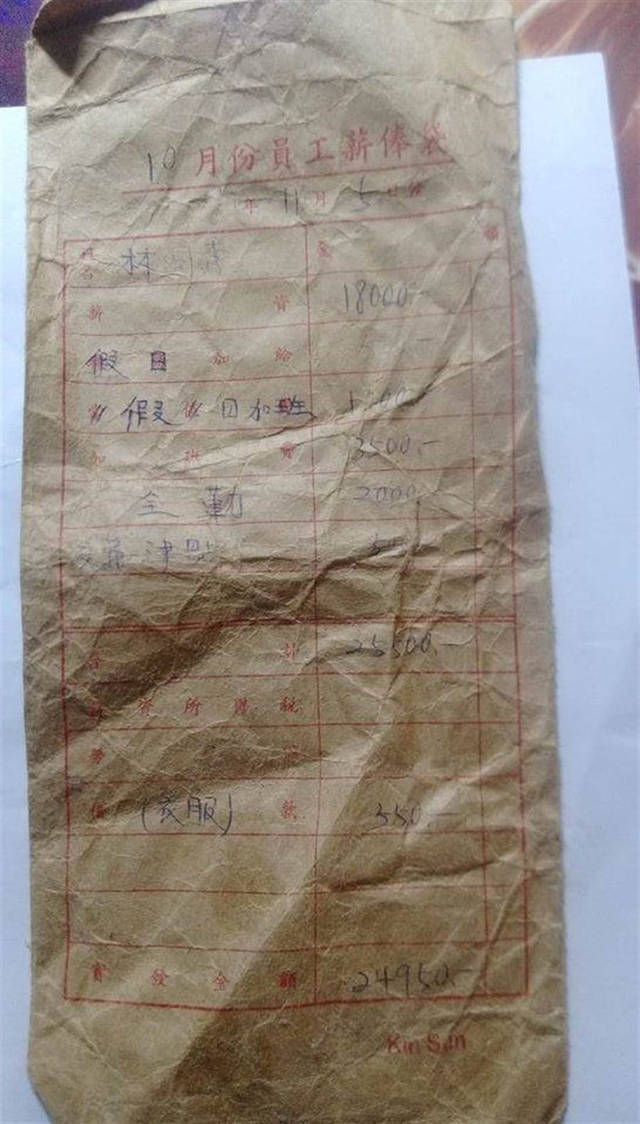 10月份員工薪俸袋
年 11 月 5 日份
姓名 林 金 額
薪 資 18000.-
假日 加 給
假 日加班
加 班 費 3500.-
全勤 2000
津貼
合 計 25500.-
薪 資 所 得 稅
勞
借 (衣服) 款 550.-
實 發 金 額 24950.-
Kin San